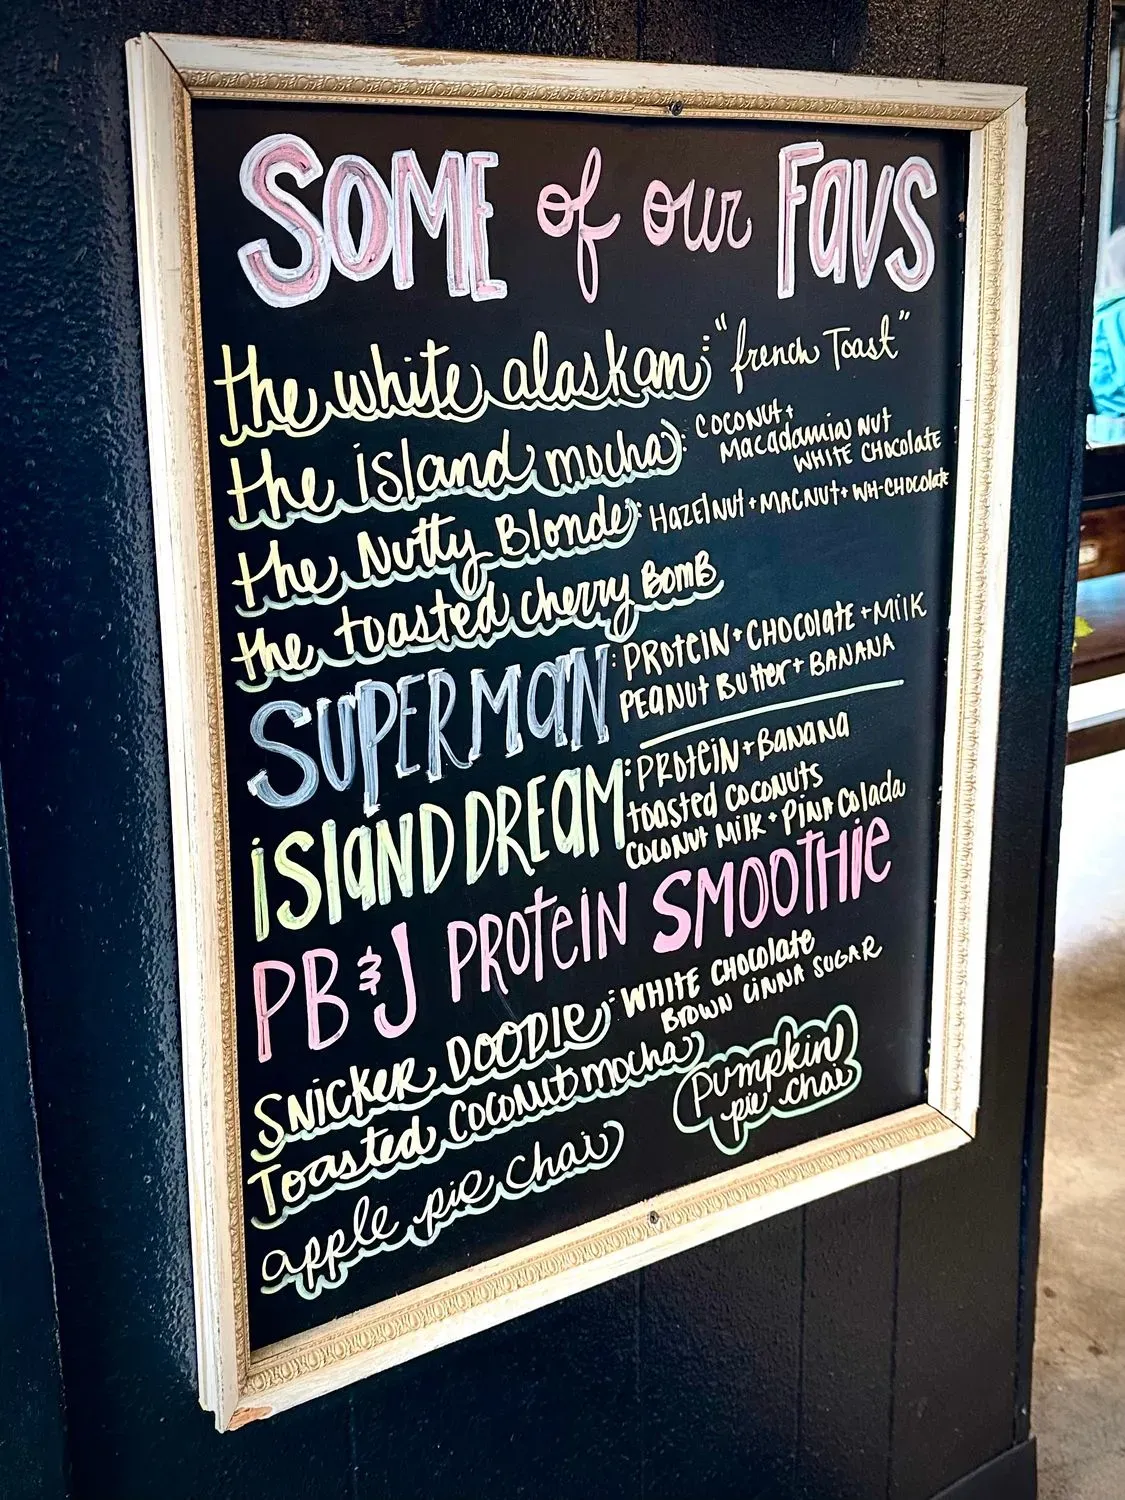 SOME of our FavS
the white alaskan: "french Toast"
the island mocha: COCONUT +
Macadamia NUT
WHITE CHOCOLATE
the Nutty Blonde: HAZElNUT + MACNUT + WH-CHOCOLATE
the toasted cherry BOMB
SUPERMAN: PROTEIN + CHOCOLATE + MILK
PEANUT BUTTER + BANANA
ISLAND DREAM: PROTEIN + BANANA
TOASTED COCONUTS
COCONUT MILK + PINA COLADA
PB & J PROTEIN SMOOTHIE
SNICKER DOODLE: WHITE CHOCOLATE
BROWN CINNA SUGAR
TOASTED COCONUT mocha
pumpkin
pie chai
apple pie chai